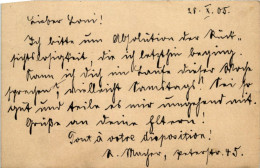 28. X. 05.
Lieber Toni!
Ich bitte um Absolution der Rück-
sichtslosigkeit, die ich letzthin beging.
Kann ich dich im Laufe dieser Woche
sprechen, vielleicht Samstag? Sei so
gut und teile es mir umgehend mit.
Grüße an deine Eltern.
Tout à votre disposition!
K. Macher, Peterstr. 45.